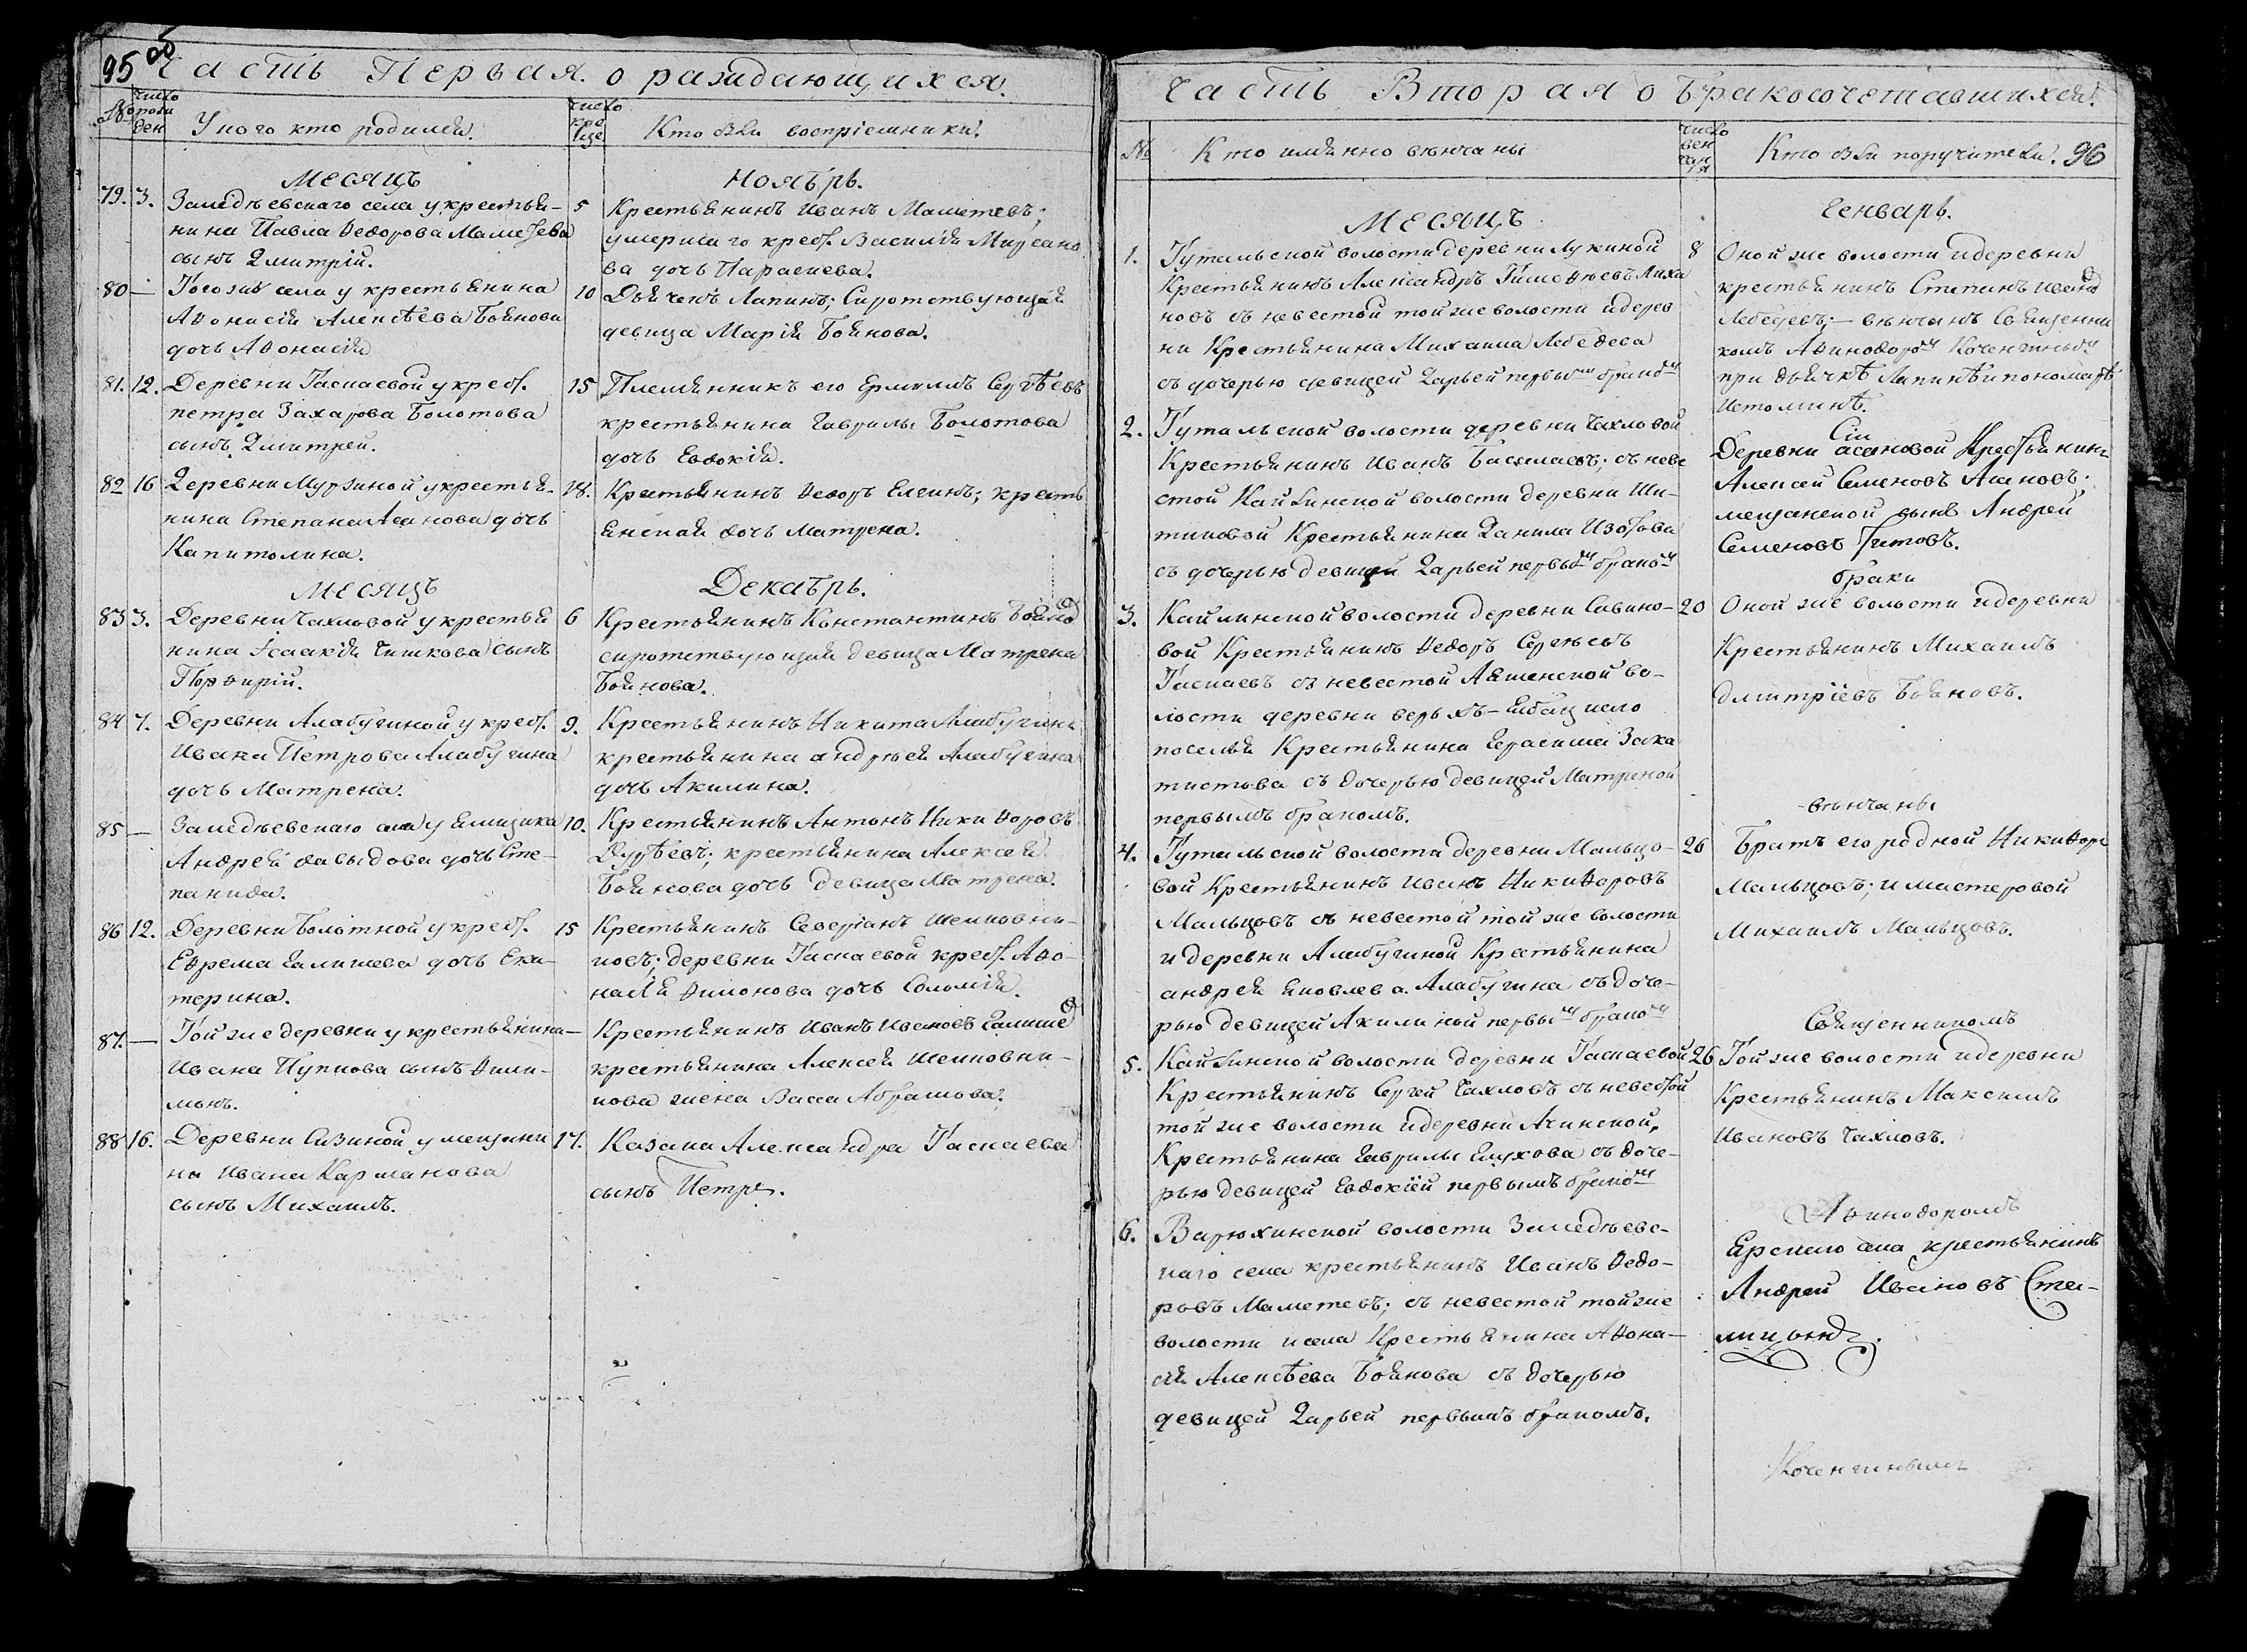 95 об
Часть Первая. о раждающихся.
№
число рожден
У кого кто родился.
число кре ще
Кто был воспріемники.
Месяцъ Ноябрь.
79. 3. Замедъевскаго села у крестья-
нина Павла Ѳедорова Маметева
сынъ Дмитрій.
5 Крестьянинъ Иванъ Маметевъ;
умершаго крест. Василія
ва дочь Параскева.
80 — Того жъ села у крестьянина
Аѳонасія Алексѣева Боянова
дочь Аѳонасія
10 Дьячекъ Лапинъ; Сиротствующая
девица Марія Боянова.
81. 12. Деревни Таскаевой у крест.
петра Захарова Болотова
сынъ Дмитрей.
15 Племянникъ его Ермилъ Сергѣевъ
крестьянина Гаврилы Болотова
дочь Евдокія.
82 16 Деревни Мурзиной у крестья-
нина Степана Асанова дочь
Капитолина.
18. Крестьянинъ Ѳедоръ Елгинъ; кресть
янская дочь Матрена.
Месяцъ Декабрь.
83 3. Деревни Чахловой у крестья
нина Ісаакія Чишкова сынъ
Порфирій.
6 Крестьянинъ Константинъ Бояновъ
сиротствующая девица Матрена
Боянова.
84 7. Деревни Алабугиной у крест.
Ивана Петрова Алабугина
дочь Матрена.
9. Крестьянинъ Никита Алабугинъ
крестьянина андрея Алабугина
дочь Акилина.
85 — Замедъевскаго села у ямщика
Андрея давыдова дочь Сте-
панида.
10. Крестьянинъ Антонъ Никифоровъ
крестьянина Алексея
Боянова дочь девица Матрена.
86 12. Деревни Болотной у крест.
Ефрема Галишева дочь Ека-
терина.
15 Крестьянинъ Северіанъ Шелковни-
ковъ; деревни Таскаевой крест. Афо-
насія Филонова дочь Соломія.
87. — Той же деревни у крестьянина
Ивана Пупкова сынъ Фили-
монъ.
— Крестьянинъ Иванъ Ивановъ Галишевъ
крестьянина Алексея Шелковни-
кова жена Васса Абрамова.
88 16. Деревни Сизиной у мещани
на Ивана Карманова
сынъ Михаилъ.
17. Казака Александра Таскаева
сынъ Петръ.
Часть Вторая о Бракосочетавшихся.
№
Кто имянно венчаны
число вен чан ія
Кто был поручители. 96
Месяцъ Генварь.
1. Тутальской волости деревни Лукиной
Крестьянинъ Александръ Тимофеевъ Лиха
новъ съ невестой той же волости и дерев
ни Крестьянина Михаила Лебедева
съ дочерью девицей Дарьей первымъ бракомъ
8 Оной же волости и деревни
крестьянинъ Степанъ Ивановъ
Лебедевъ; — венчанъ Священни
комъ Афиногоромъ Коченгинымъ
при дьячкѣ Лапинѣ и пономарѣ
Истоминѣ.
2. Тутальской волости деревни Чахловой
Крестьянинъ Иванъ Басалаевъ; съ неве
стой Кайлинской волости деревни Ши-
тиковой Крестьянина Данила Изотова
съ дочерью девицей Дарьей первымъ бракомъ
Сіи
Деревни асановой Крестьянинъ
Алексей Семеновъ Асановъ;
мещанской сынъ Андрей
Семеновъ Титовъ.
браки
3. Кайлинской волости деревни Савино-
вой Крестьянинъ Ѳедоръ Сергѣевъ
Таскаевъ съ невестой Аяшенской во-
лости деревни верьхъ-
поселья Крестьянина Герасима Зака
тистова съ дочерью девицей Матреной
первымъ бракомъ.
20 Оной же волости и деревни
Крестьянинъ Михаилъ
дмитріевъ Бояновъ.
венчаны
4. Тутальской волости деревни Мальцо-
вой Крестьянинъ Иванъ Никифоровъ
Мальцовъ съ невестой той же волости
и деревни Алабугиной Крестьянина
андрея яковлева Алабугина съ доче-
рью девицей Акилиной первымъ бракомъ
26 Братъ его родной Никифоръ
Мальцовъ; и мастеровой
Михаилъ Мальцовъ.
Священникомъ
5. Кайлинской волости деревни Таскаевой
Крестьянинъ Сергей Чахловъ съ невестой
той же волости и деревни Ачинской,
Крестьянина Гаврилы Глухова съ доче-
рью девицей Евдокіей первымъ бракомъ
26 Той же волости и деревни
Крестьянинъ Максимъ
Ивановъ Чахловъ.
Афиногоромъ
6. Варюхинской волости Замедъевс-
каго села крестьянинъ Иванъ Ѳедо-
ровъ Маметевъ; съ невестой той же
волости и села Крестьянина Афона-
сія Алексѣева Боянова съ дочерью
девицей Дарьей первымъ бракомъ.
Ярскаго села крестьянинъ
Андрей Ивановъ
Коченгинымъ